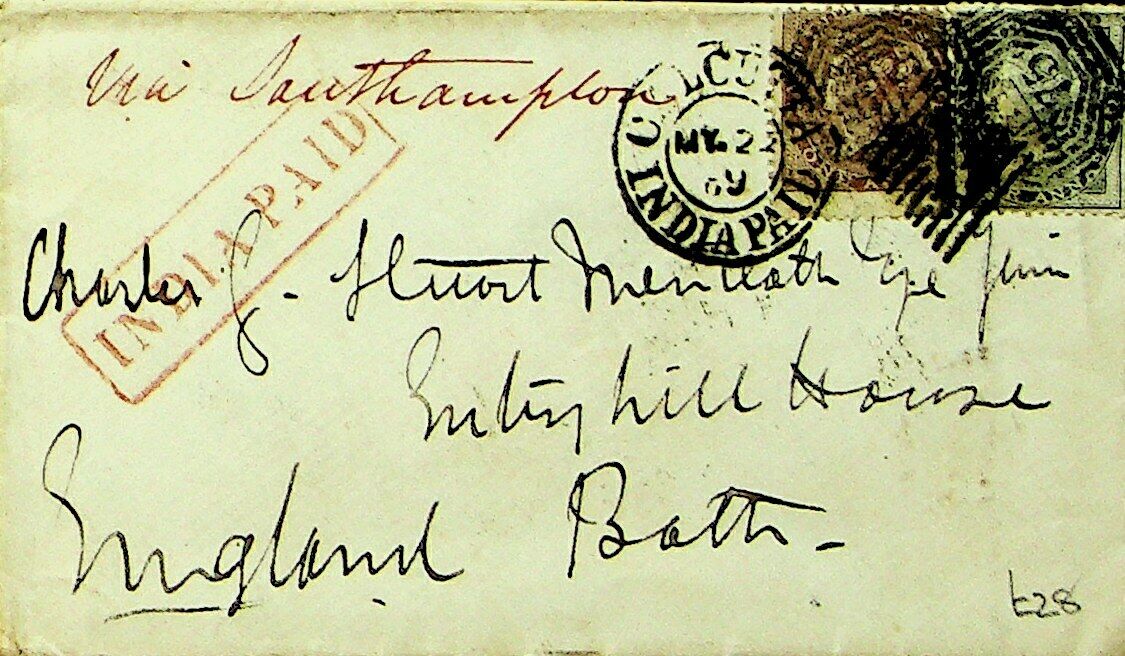 Via Southampton
INDIA PAID
CALCUTTA
MY. 22
69
INDIA PAID
Charles G. Stuart Menteath Esq Junr
Entryhill House
England Bath -
£28